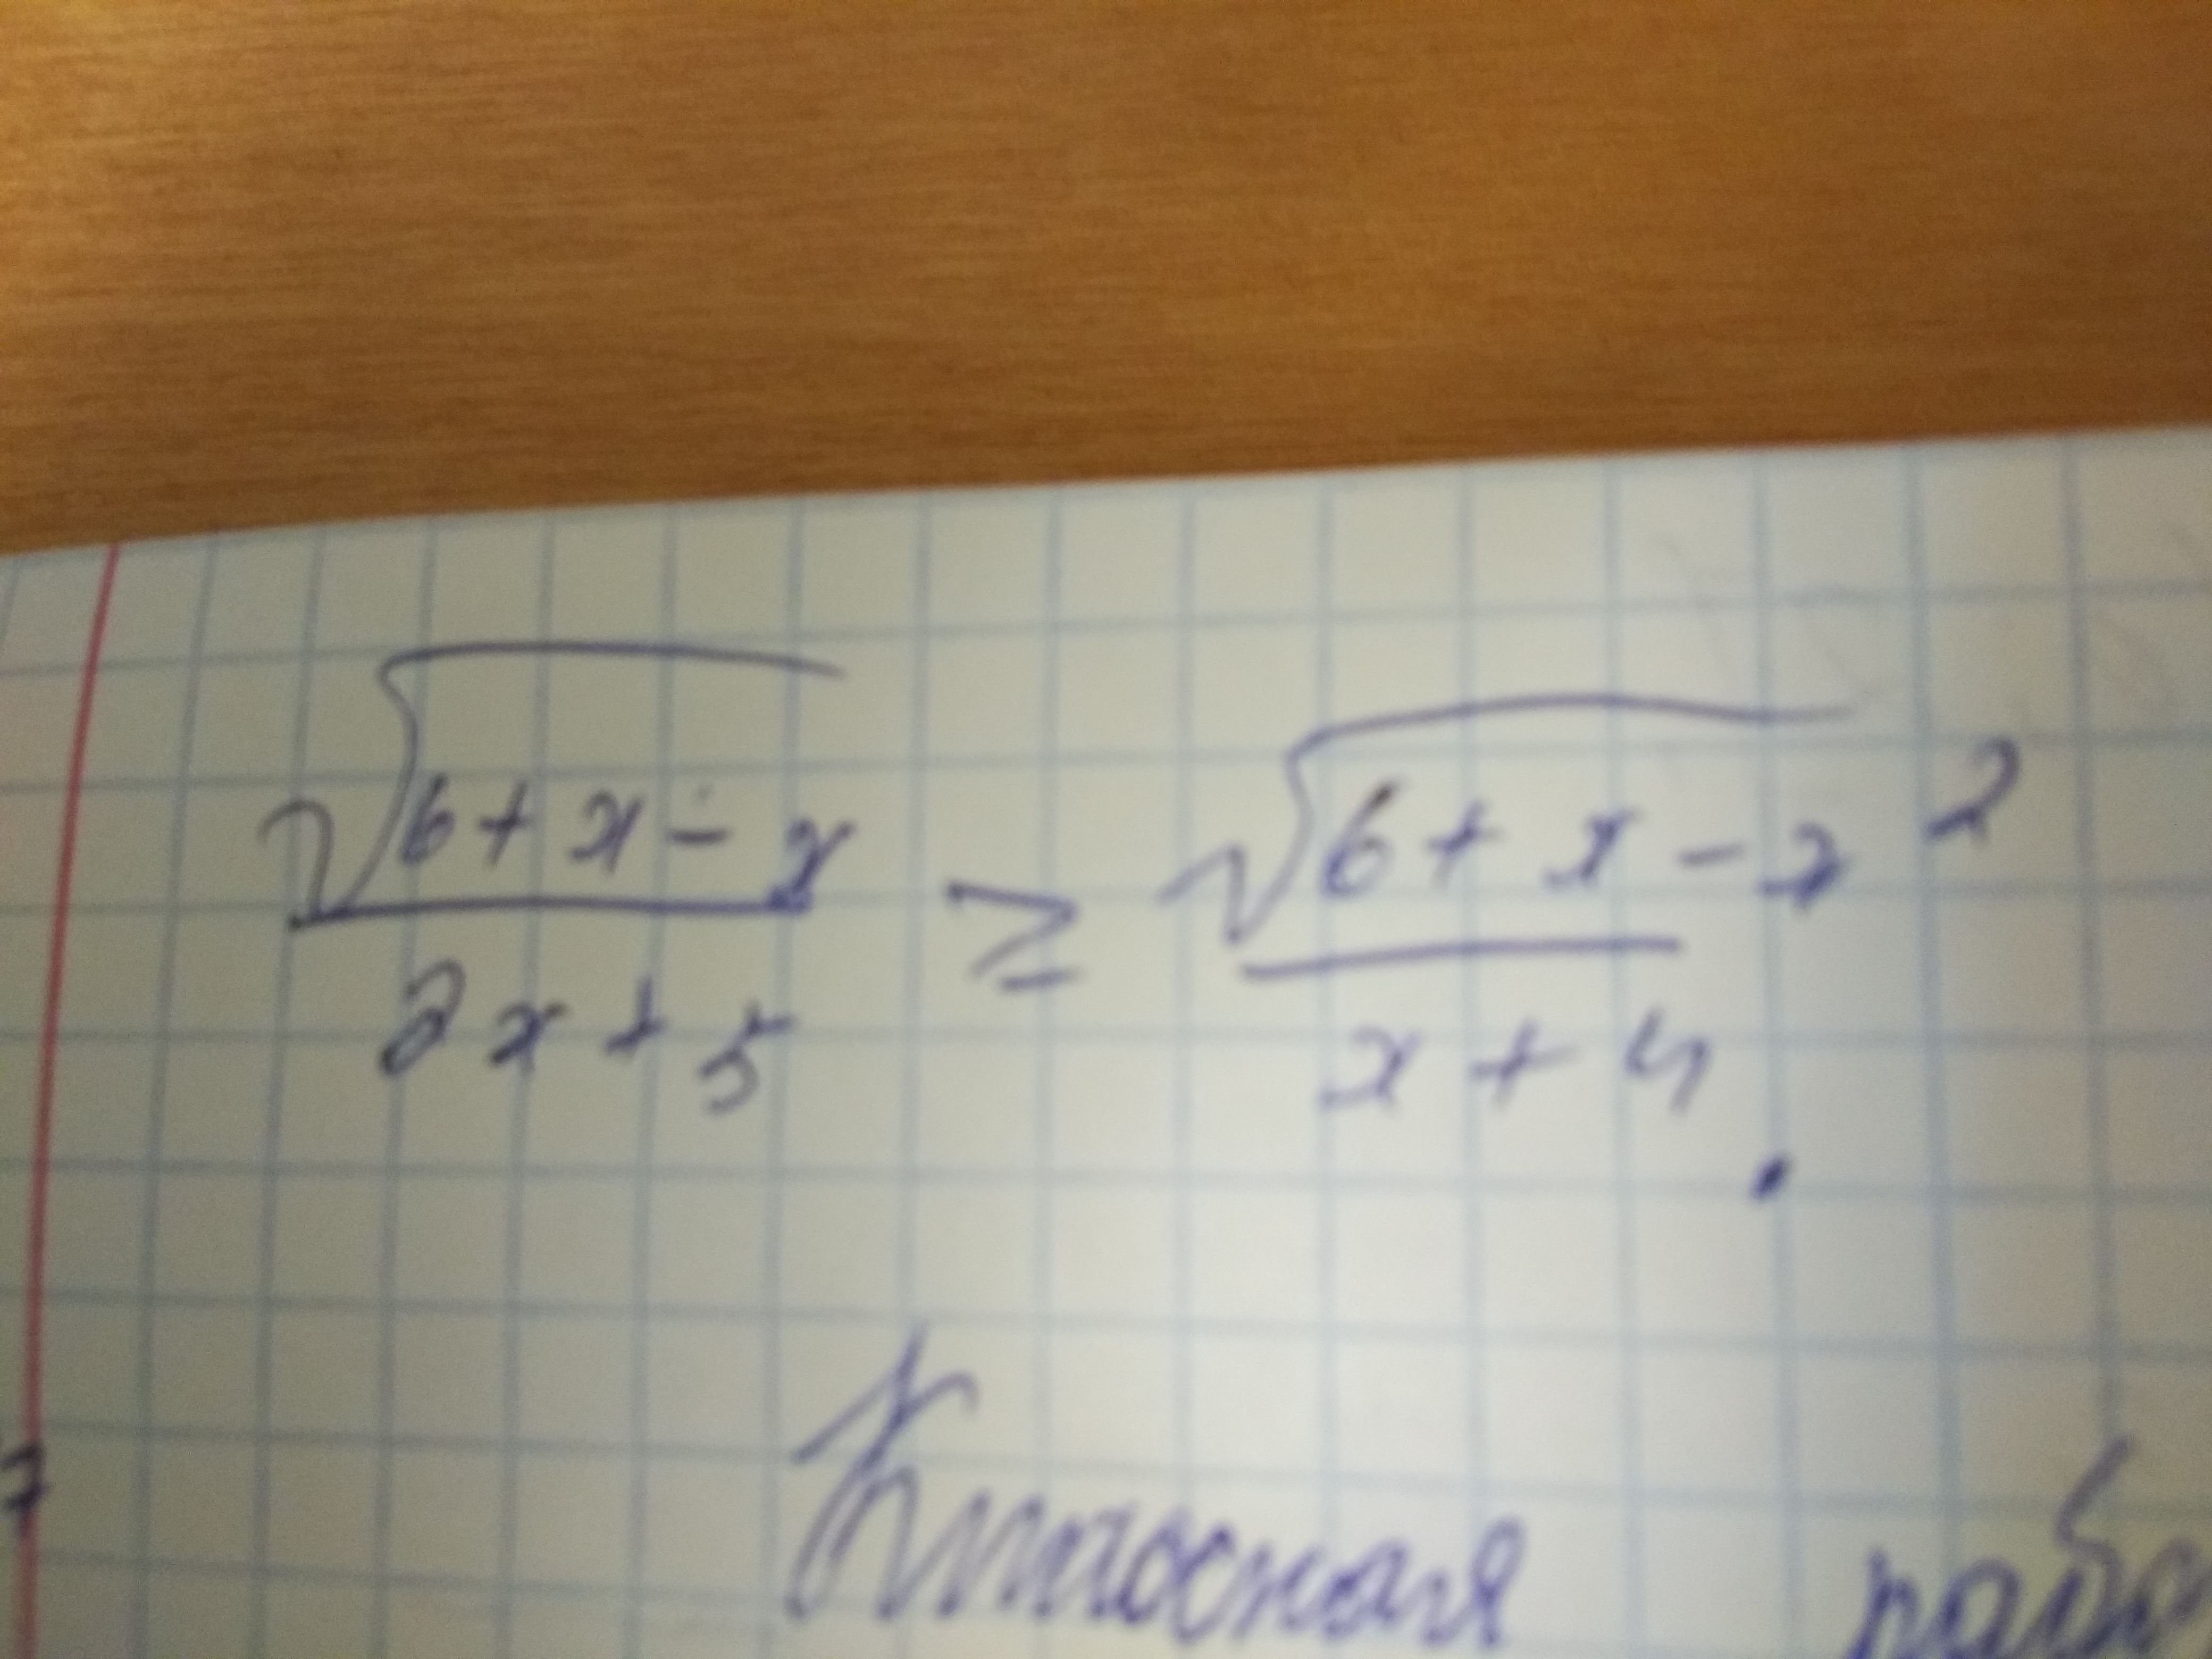 √(6+x-x)/(2x+5) ≥ √(6+x-x²)/(x+4)
Классная рабо